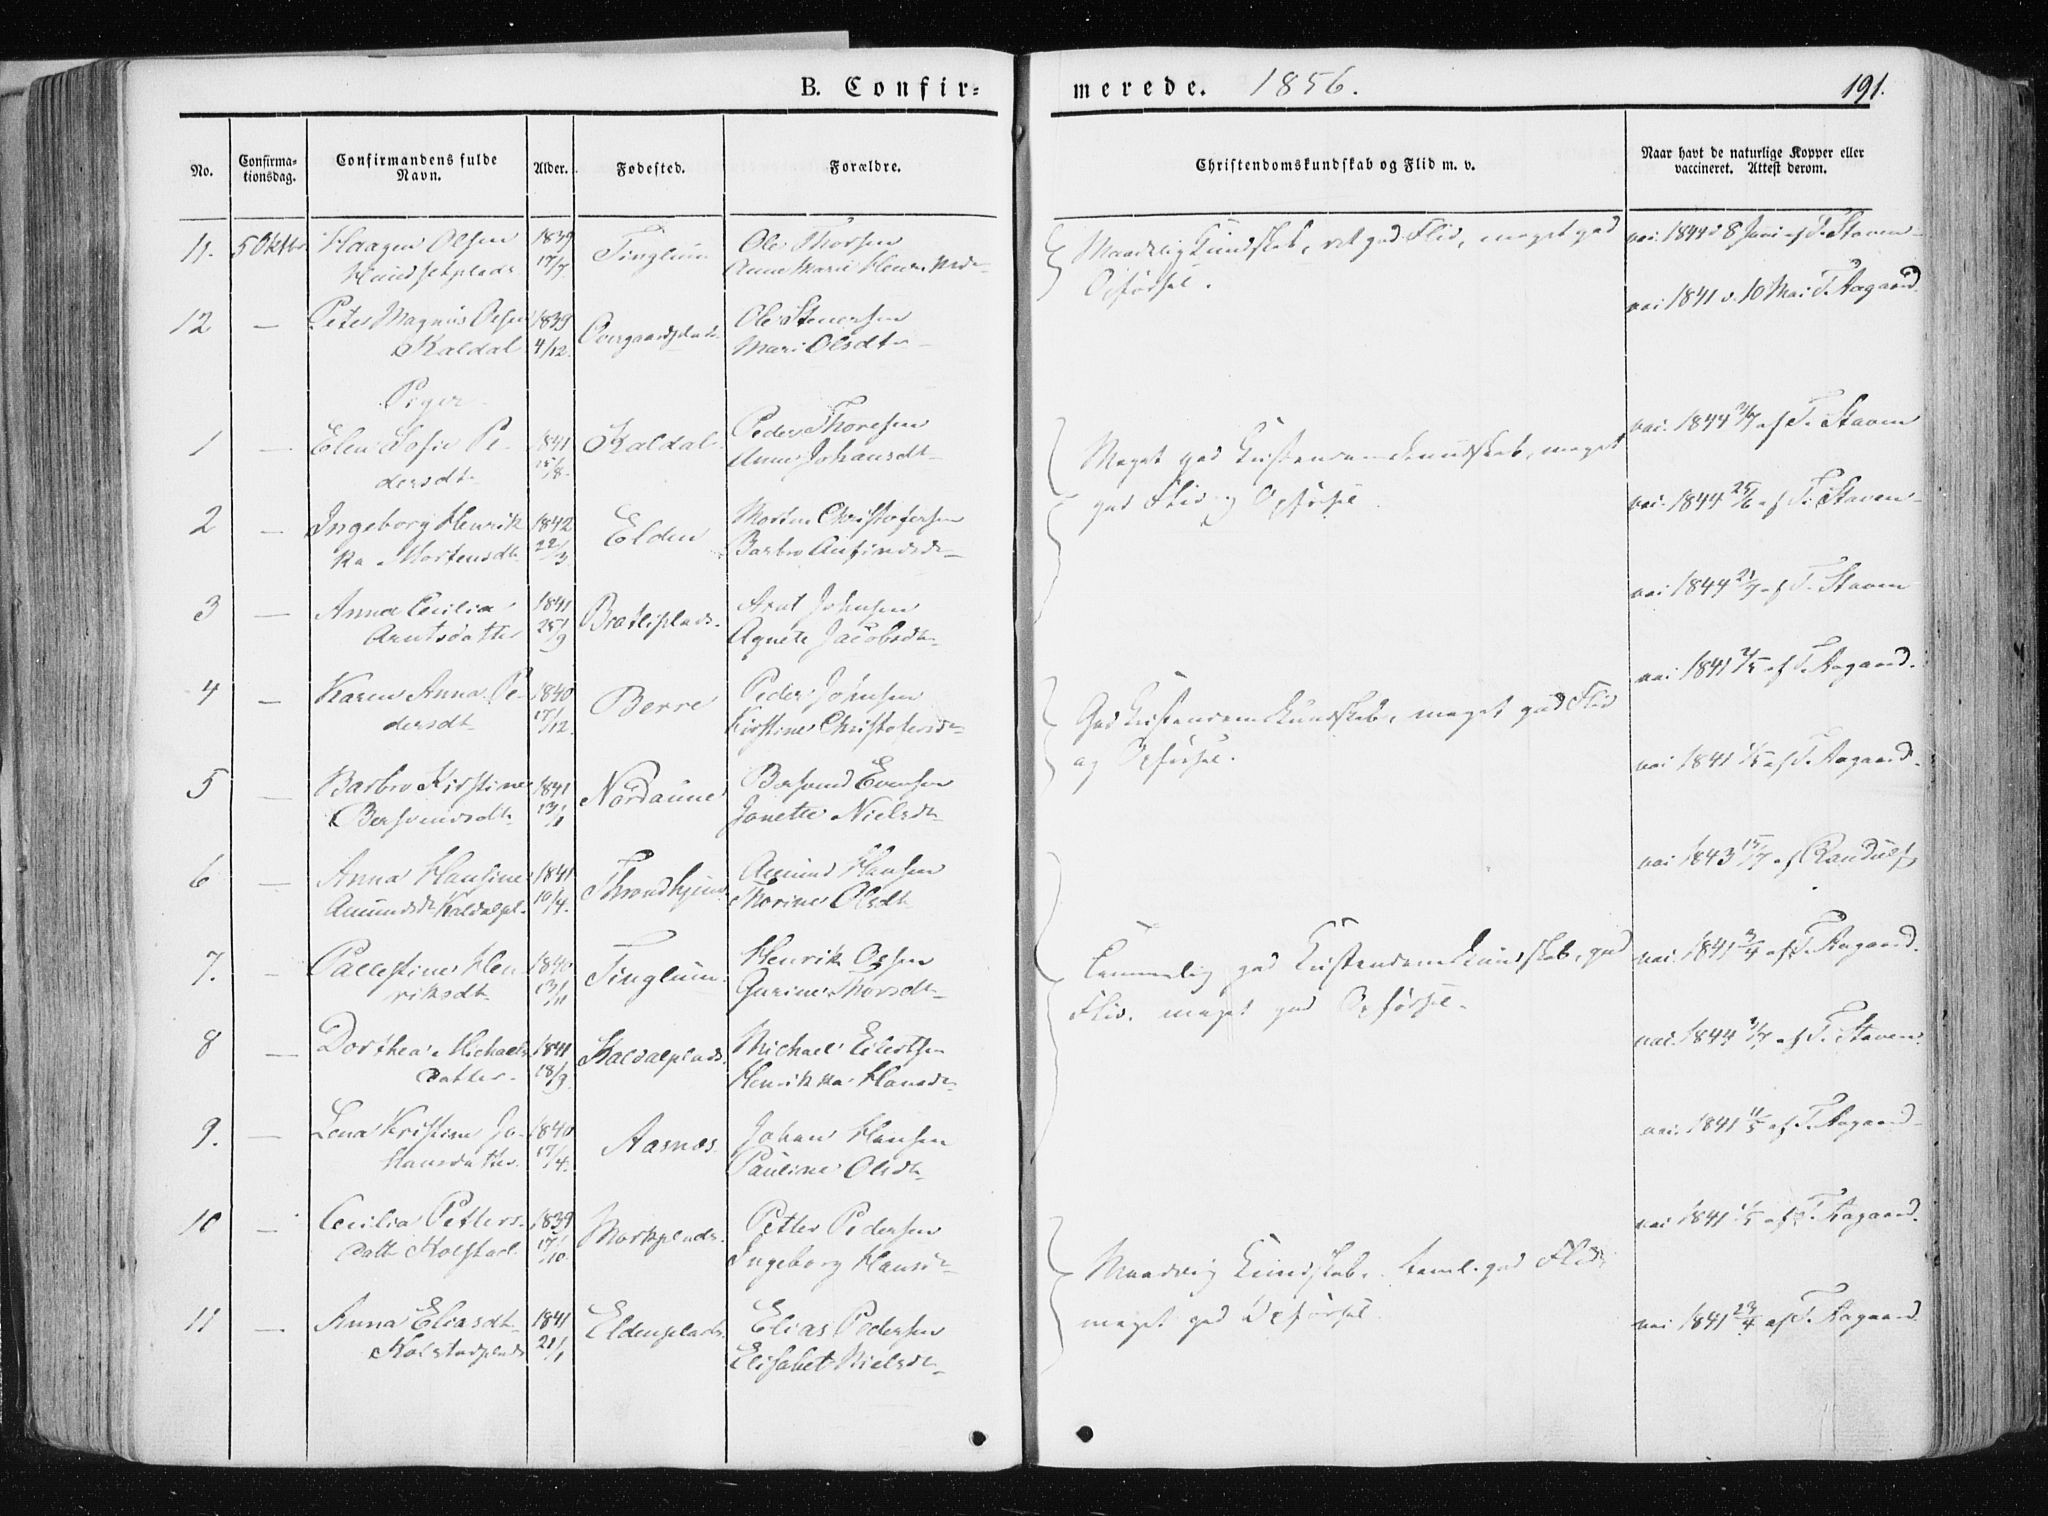 B. Confir=
merede. 1856.
191.
No.
Confirma-
tionsdag.
Confirmandens fulde
Navn.
Alder.
Fødested.
Forældre.
Christendomskundskab og Flid m. v.
Naar havt de naturlige Kopper eller
vaccineret. Attest derom.
11. 5 Oktbr. Haagen Olsen 1839 Tinglum Ole Thorsen
Hundsetplads 17/7 Anne Marie
Maadelig Kundskab, ret god Flid, meget god
Opførsel.
vac. 1844 8 Juni af T. Staven
12 — Peter Magnus Olsen 1839 Overgaardsplads Ole Stenersen
Kaldal 4/12. Mari Olsdt
vac. 1841 10 Mai T. Aagaard
Piger
1 — Elen Sofie Pe- 1841 Kaldal Peder Thoresen
dersdt 15/8. Anne Johansdt
Meget god Kristendomskundskab, meget
god Flid og Opførsel
vac. 1844 2/7 af T. Staven
2 — Ingeborg Henrik 1842 Elden Morten Christofersen
ka Mortensdt 22/3 Barbro Anfindsdt
vac. 1844 25/6 af T. Staven
3 — Anna Cecilia 1841 Brætliplads. Arnt Johnsen
Arntsdatter 25/9 Agnete Jacobsdt
vac 1844 2/7 af T. Staven
4 — Karen Anna Pe- 1840 Berre Peder Johnsen
dersdt 17/12. Kirstine Christofersdt
God Kristendomskundskab, meget god Flid
og Opførsel.
vac 1841 2/5 af T. Aagaard.
5 — Barbro Kirstine 1841 Nordaune Bersvend Evensen
Bersvendsdt 13/1 Janette Nielsdt
vac 1841 1/5 af T. Aagaard.
6 — Anna Hansine 1841 Throndhjem. Amund Hansen
Amundsdt Kaldalpl. 10/4. Thorine Olsdt
vac 1843 15/7 af Randulf
7. — Pallestine Hen 1840 Tinglum. Henrik Olsen
riksdt 13/11 Gurine Thorsdt
Temmelig god Kristendomskundskab, god
Flid, meget god Opførsel.
vac. 1841 3/4 af T. Aagaard.
8 — Dorthea Michaels 1841 Kaldalplads. Michael Eilertsen
datter. 18/3. Henrikka Hansdt
vac. 1844 2/7 af T. Staven.
9. — Lena Kristine Jo- 1840 Aasnæs. Johan Hansen
hansdatter 17/4. Pauline Olsdt
vac. 1841 11/5 af T. Aagaard
10 — Cecilia Petters- 1839 Morkplads. Petter Pedersen
datt Holstad. 17/10. Ingeborg Hansdt
Maadelig Kundskab, teml. god Flid,
meget god Opførsel.
vac 1841 1/5 af T. Aagaard.
11 — Anna Eliasdt 1841 Eldenplads Elias Pedersen
Kolstadplads 21/1 Elisabet Nielsdt
vac 1841 23/4 af T. Aagaard.